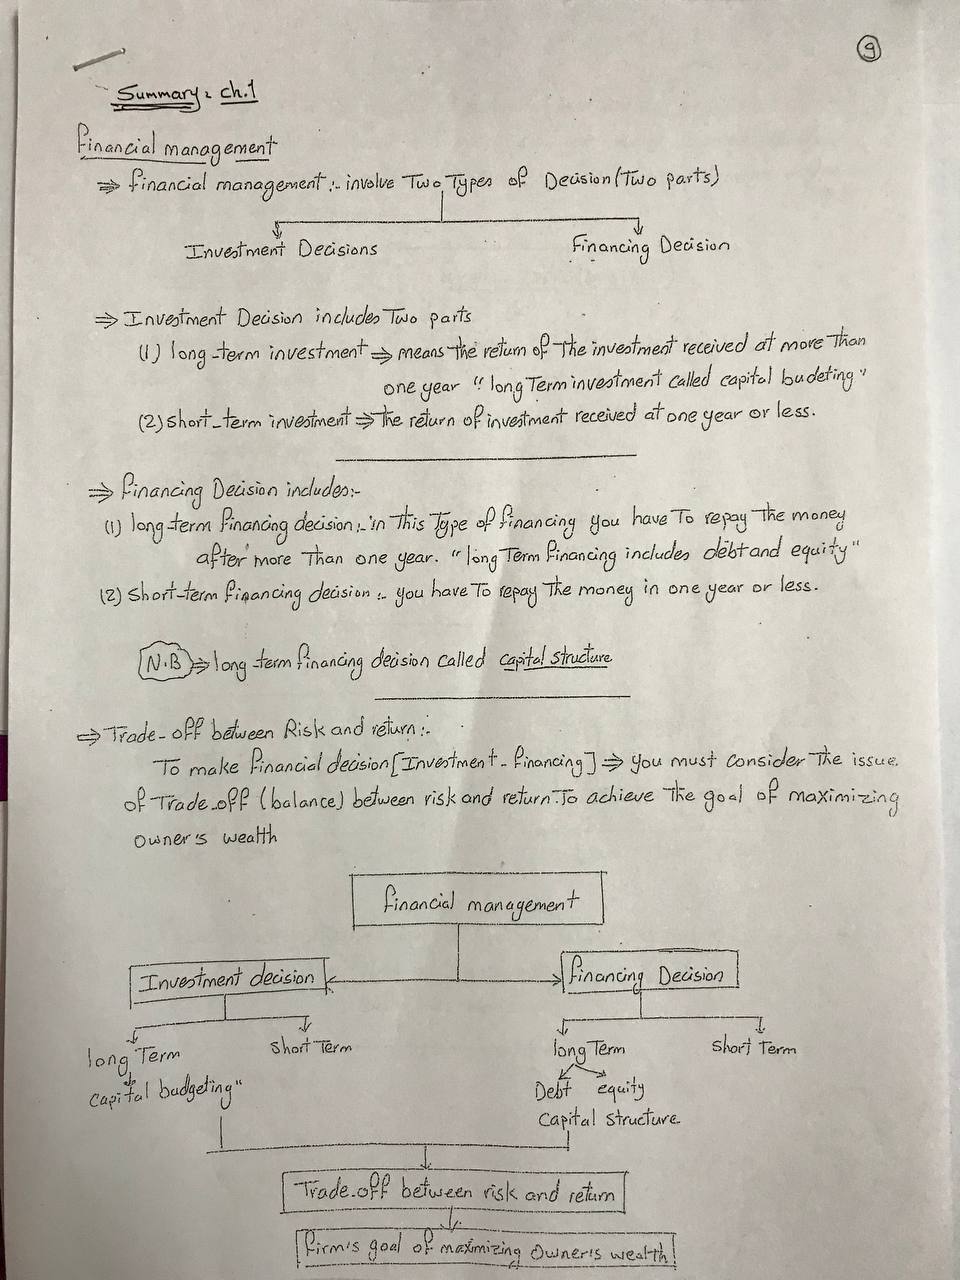 9
Summary: ch.1
Financial management
⇒ financial management:- involve Two Types of Decision (Two parts)
Investment Decisions
Financing Decision
⇒ Investment Decision includes Two parts
(1) long-term investment ⇒ means the return of The investment received at more Than
one year "long Term investment called capital budeting"
(2) short-term investment ⇒ The return of investment received at one year or less.
⇒ financing Decision includes:-
(1) long-term financing decision:- in This Type of financing you have To repay The money
after more Than one year. "long Term financing includes debt and equity"
(2) short-term financing decision:- you have To repay The money in one year or less.
N.B ⇒ long term financing decision called capital structure
⇒ Trade-off between Risk and return:-
To make financial decision [Investment - financing] ⇒ you must consider The issue
of Trade-off (balance) between risk and return To achieve The goal of maximizing
owner's wealth
financial management
Investment decision
financing Decision
long Term
short Term
long Term
short Term
capital budgeting"
Debt equity
capital structure
Trade-off between risk and return
firm's goal of maximizing owner's wealth